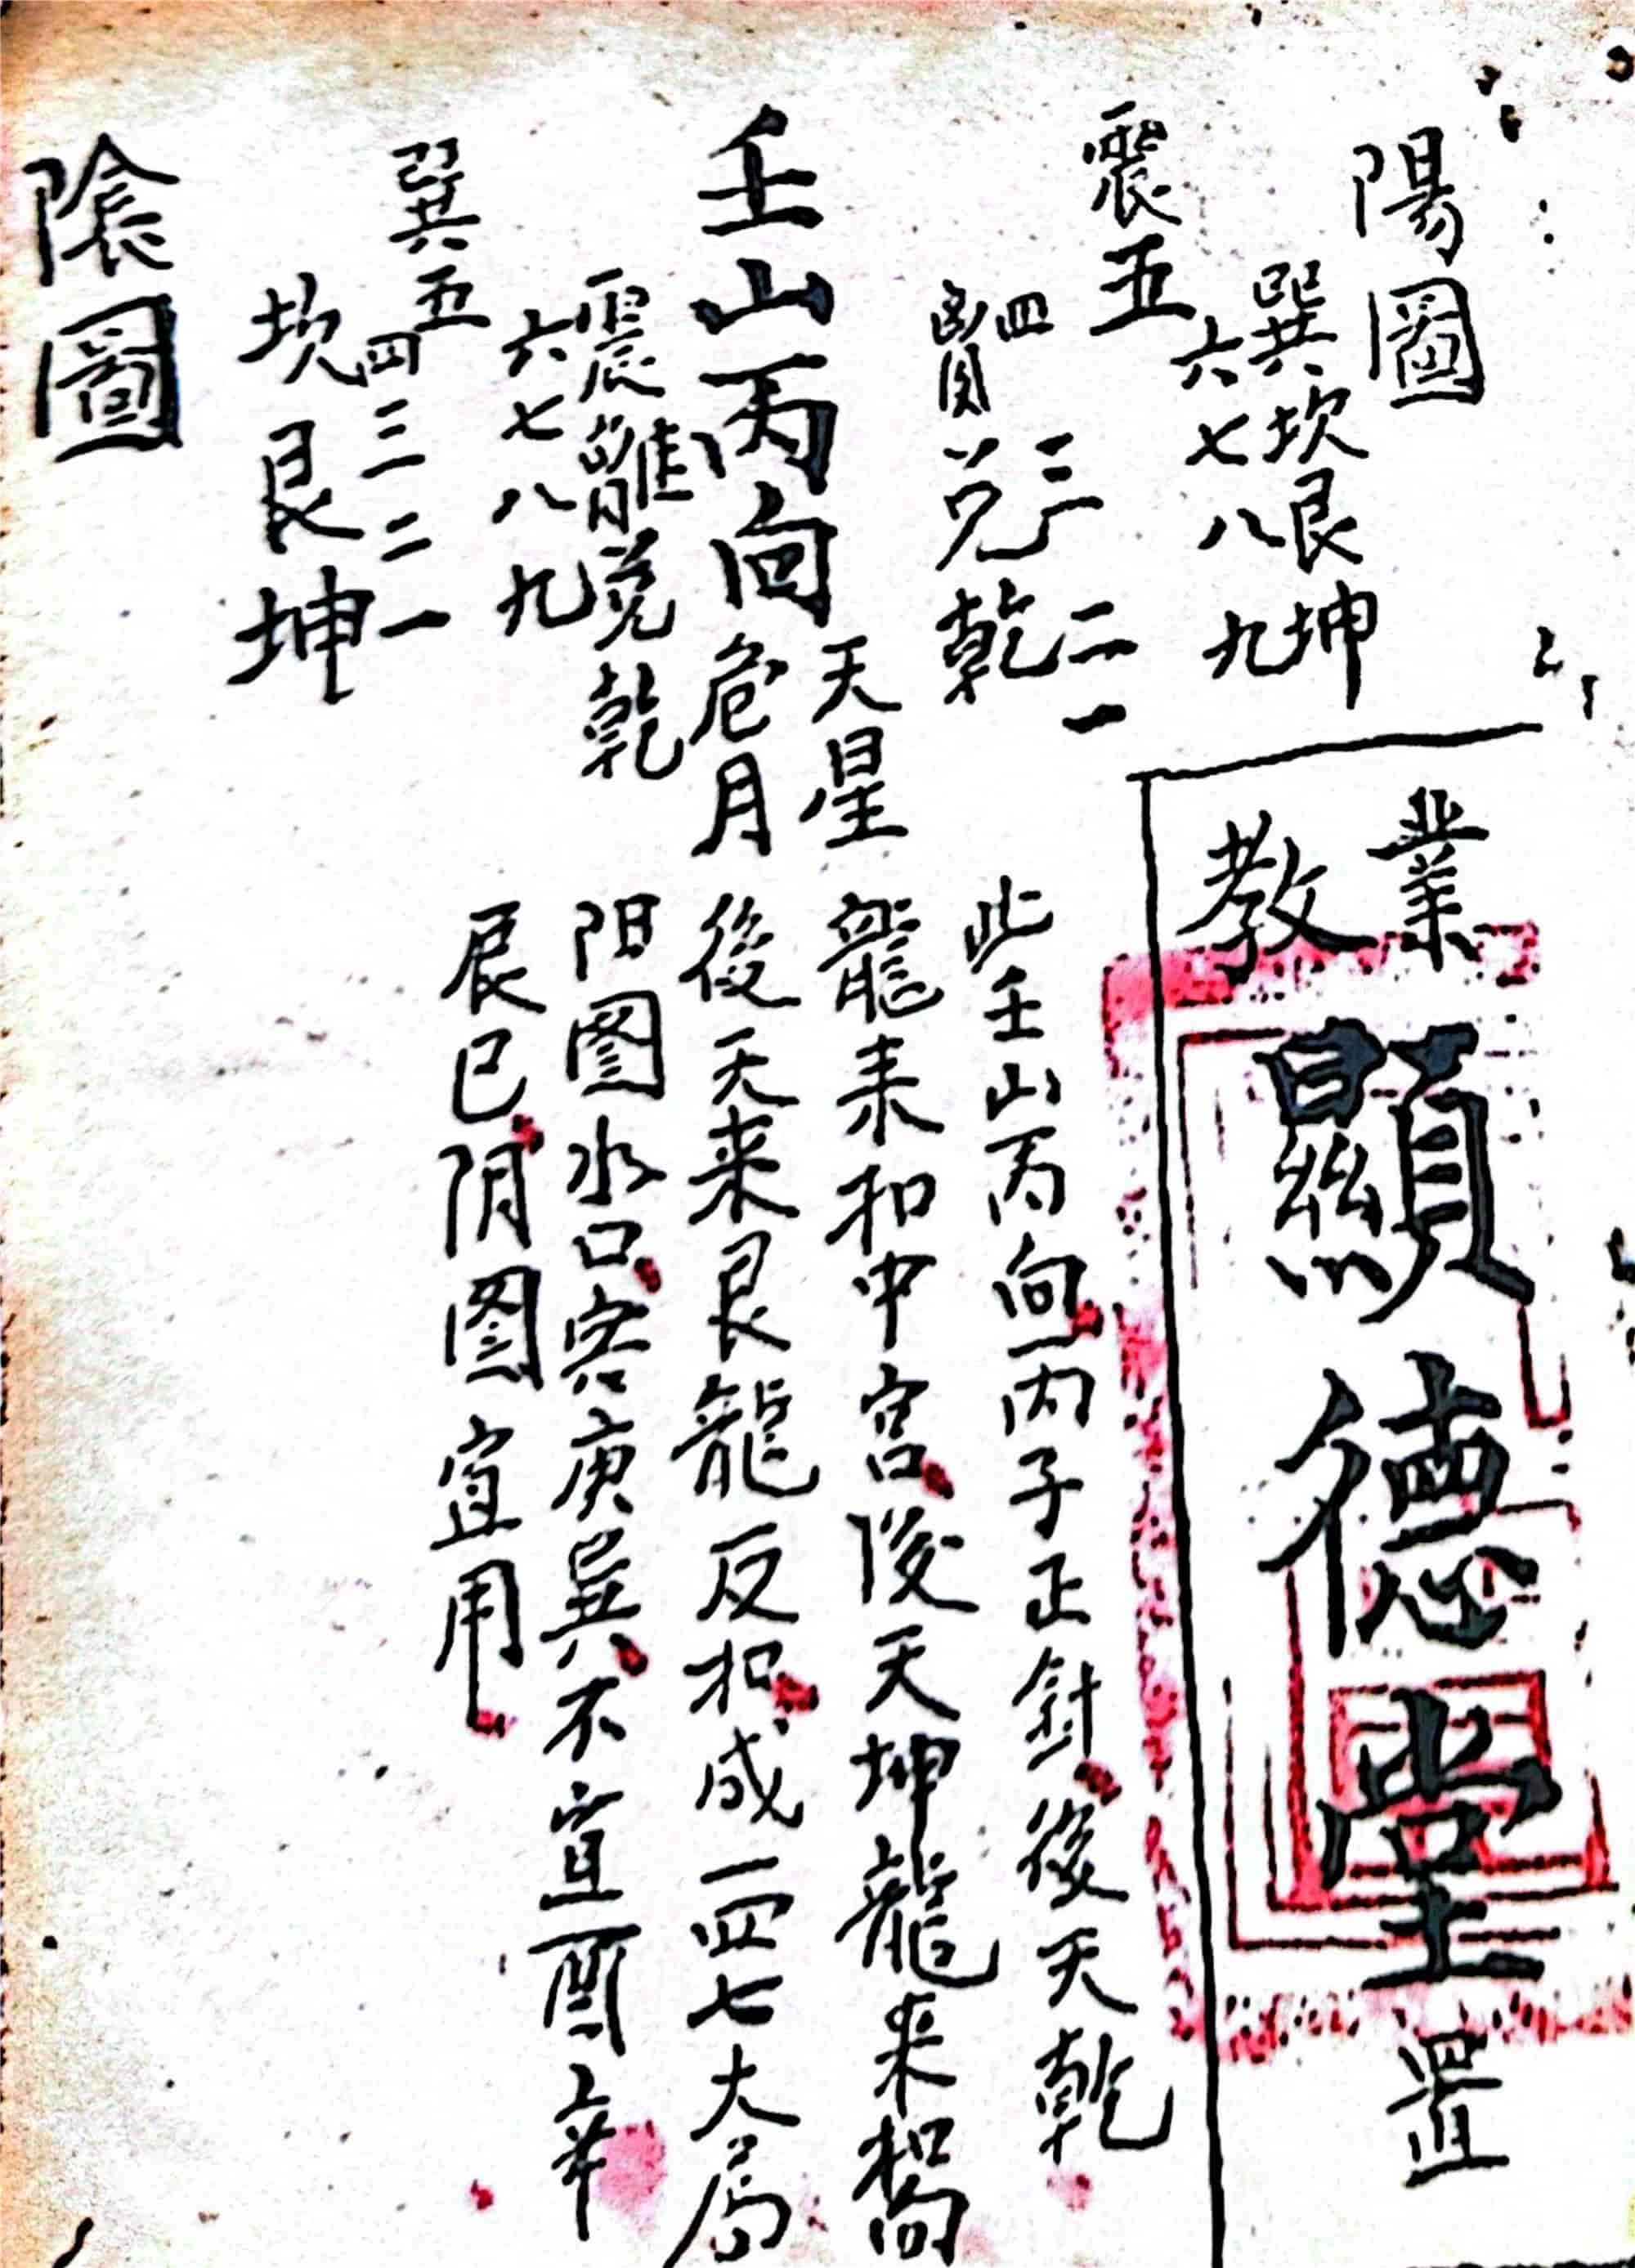 陽圖
巽坎艮坤
六七八九
震五
四三二一
離兌乾
業教
顯德堂置
壬山丙向
天星
危月
此壬山丙向丙子正針後天乾
龍来扣中宮後天坤龍来扣向
後天来艮龍反扣成一四七大局
阳图水口客庚巽不宜酉辛
辰巳阴图宜用
震離兌乾
六七八九
巽五
四三二一
坎艮坤
陰圖